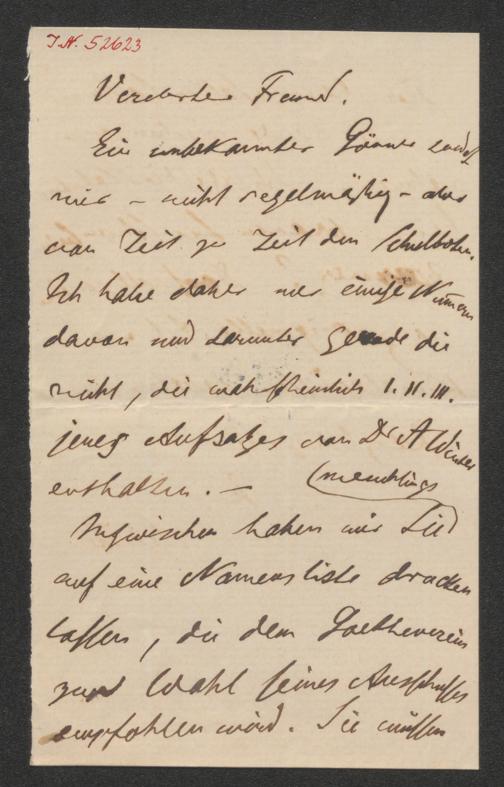 J.N. 52623
Verehrter Freund.
Ein unbekannter Gönner sendet
mir – nicht regelmäßig – aber
von Zeit zu Zeit den Schulboten.
Ich habe daher nur einige Numern
davon und darunter gerade die
nicht, die wahrscheinlich I. II. III.
jenes Aufsatzes von Dr A
enthalten. –
Inzwischen haben wir Sie
auf eine Namensliste drucken
lassen, die dem Goetheverein
zur Wahl seines Ausschusses
empfohlen wird. Sie müssen